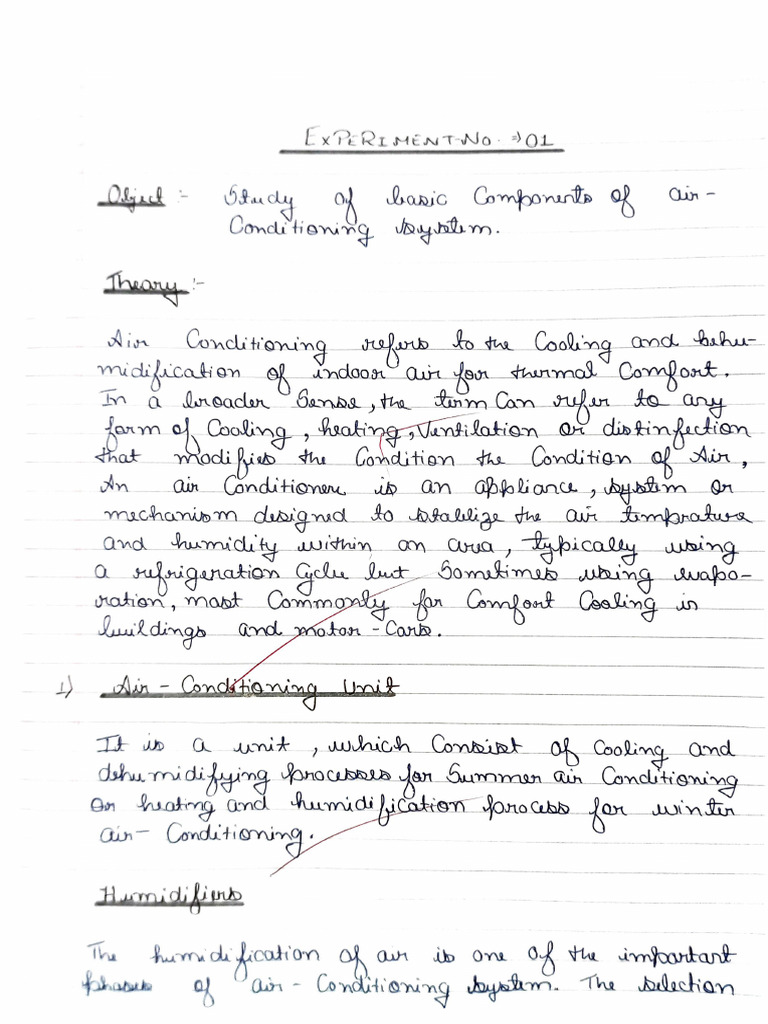 EXPERIMENT-NO. ⇒ 01
Object :- Study of basic Components of air-
Conditioning system.
Theory :-
Air Conditioning refers to the Cooling and behu-
midification of indoor air for thermal Comfort.
In a broader Sense, the term Can refer to any
form of Cooling, heating, Ventilation or distinfection
that modifies the Condition the Condition of Air,
An air Conditioner is an appliance, system or
mechanism designed to stabilize the air temprature
and humidity within an area, typically using
a refrigeration Cycle but Sometimes using evapo-
ration, most Commonly for Comfort Cooling in
buildings and motor-Cars.
1) Air-Conditioning Unit
It is a unit, which Consist of Cooling and
dehumidifying processes for Summer air Conditioning
or heating and humidification process for winter
air-Conditioning.
Humidifiers
The humidification of air is one of the important
phases of air-Conditioning system. The selection